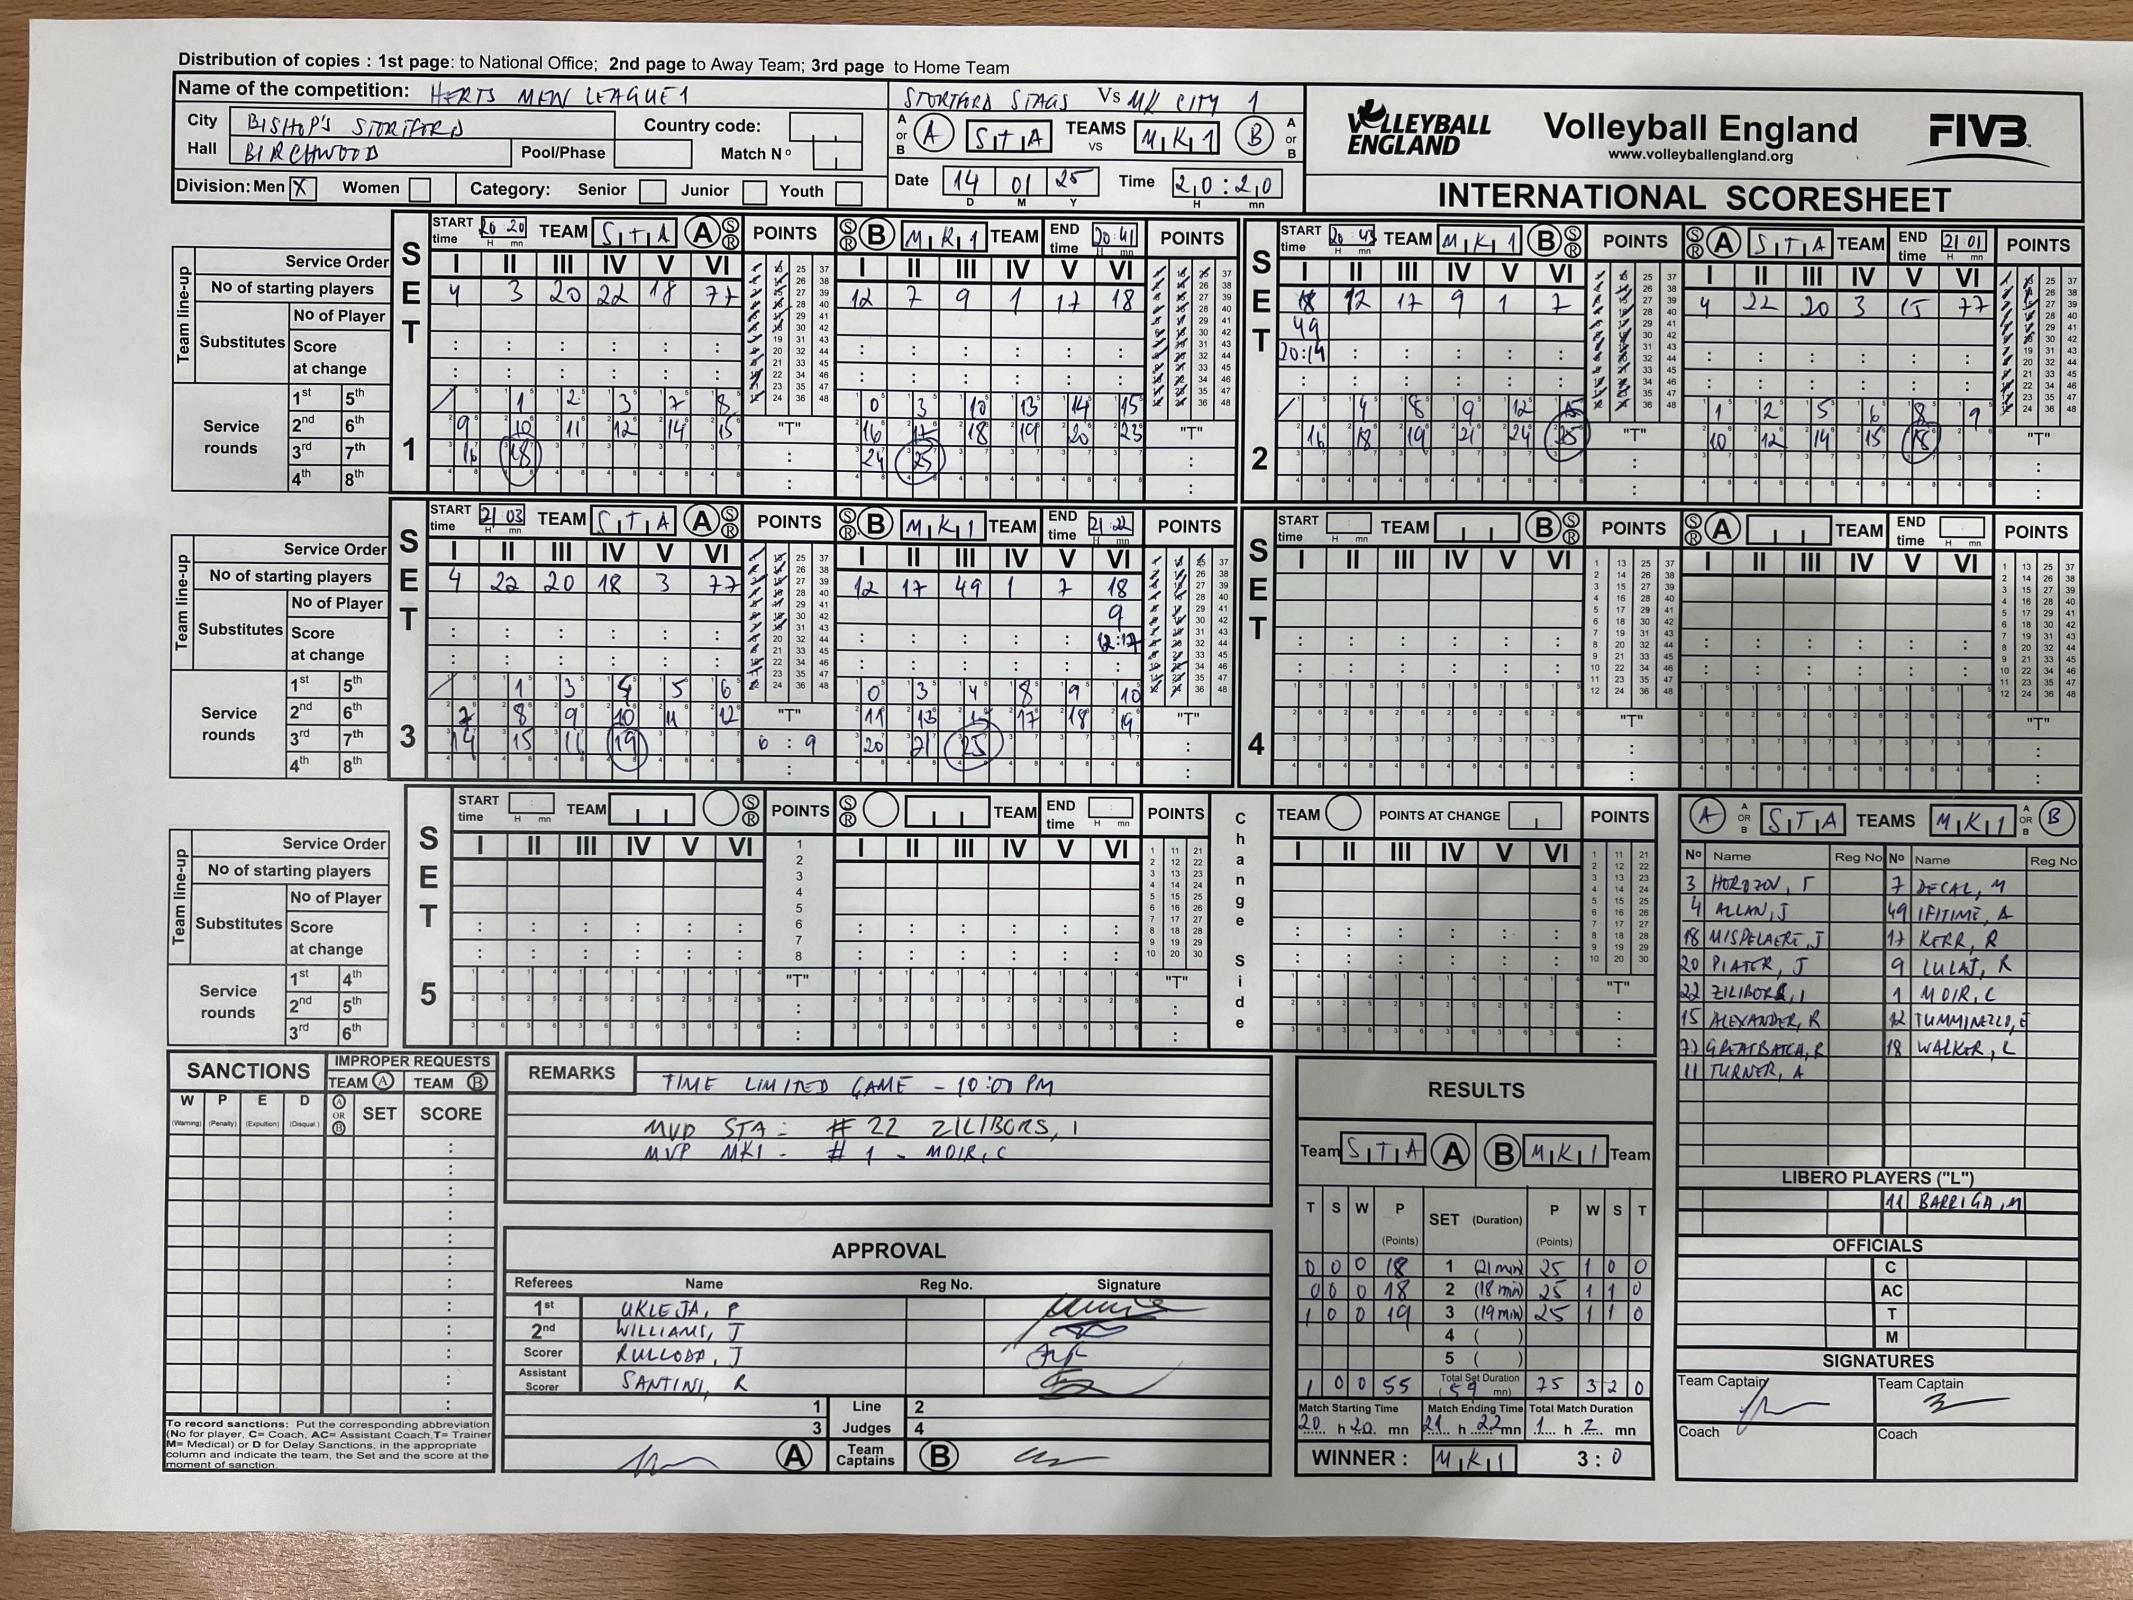 Distribution of copies : 1st page: to National Office; 2nd page to Away Team; 3rd page to Home Team
Name of the competition: HERTS MEN LEAGUE 1
STORTFORD STAGS Vs MK CITY 1
City BISHOP'S STORTFORD Country code:
Hall BIRCHWOOD Pool/Phase Match Nº
A or B A STA TEAMS vs MK1 B A or B
Division: Men X Women Category: Senior Junior Youth
Date 14 01 25 Time 20:20
D M Y H mn
VOLLEYBALL ENGLAND
Volleyball England
www.volleyballengland.org
FIVB
INTERNATIONAL SCORESHEET
SET 1
START time 20 20 TEAM STA A S R POINTS S R B MK1 TEAM END time 20:41 POINTS
Service Order I II III IV V VI I II III IV V VI
No of starting players 4 3 20 22 18 77 12 7 9 1 17 18
Team line-up
Substitutes No of Player
Score at change
Service rounds
1st 5th 1 2 3 7 8 0 3 10 13 14 15
2nd 6th 9 10 11 12 14 15 16 17 18 19 20 23
3rd 7th 16 18 24 25
4th 8th
"T" "T"
SET 2
START time 20:43 TEAM MK1 B S R POINTS S R A STA TEAM END time 21 01 POINTS
I II III IV V VI I II III IV V VI
18 12 17 9 1 7 4 22 20 3 15 77
49
20:14
4 8 9 12 15 1 2 5 6 8 9
16 18 19 21 24 25 10 12 14 15 18
"T" "T"
SET 3
START time 21 03 TEAM STA A S R POINTS S R B MK1 TEAM END time 21:22 POINTS
Service Order I II III IV V VI I II III IV V VI
No of starting players 4 22 20 18 3 77 12 17 49 1 7 18
Team line-up
Substitutes No of Player 9
Score at change 12:17
Service rounds
1st 5th 1 3 4 5 6 0 3 4 8 9 10
2nd 6th 7 8 9 10 11 12 11 13 17 18 19
3rd 7th 14 15 16 19 6 : 9 20 21 25
4th 8th
"T" "T"
SET 4
START time TEAM B S R POINTS S R A TEAM END time POINTS
I II III IV V VI I II III IV V VI
"T" "T"
SET 5
START time TEAM S R POINTS S R TEAM END time POINTS
Change Side
TEAM POINTS AT CHANGE POINTS
Service Order I II III IV V VI I II III IV V VI I II III IV V VI
No of starting players
Team line-up
Substitutes No of Player
Score at change
Service rounds
1st 4th
2nd 5th
3rd 6th
"T" "T" "T"
A A OR B STA TEAMS MK1 A OR B B
Nº Name Reg No Nº Name Reg No
3 HOROZOV, T 7 DECAL, M
4 ALLAN, J 49 IFITIME, A
18 MISPELAERE, J 17 KERR, R
20 PIATER, J 9 LULAJ, R
22 ZILIBORS, I 1 MOIR, C
15 ALEXANDER, R 12 TUMMINELLO, E
77 GREATBATCH, R 18 WALKER, L
11 TURNER, A
LIBERO PLAYERS ("L")
11 BARRIGA, M
OFFICIALS
C
AC
T
M
SIGNATURES
Team Captain Team Captain
Coach Coach
SANCTIONS IMPROPER REQUESTS
TEAM A TEAM B
W P E D A OR B SET SCORE
(Warning) (Penalty) (Expultion) (Disqual.)
To record sanctions: Put the corresponding abbreviation
(No for player, C= Coach, AC= Assistant Coach, T= Trainer
M= Medical) or D for Delay Sanctions, in the appropriate
column and indicate the team, the Set and the score at the
moment of sanction.
REMARKS TIME LIMITED GAME - 10:00 PM
MVP STA - # 22 ZILIBORS, I
MVP MK1 - # 1 - MOIR, C
APPROVAL
Referees Name Reg No. Signature
1st UKLEJA, P
2nd WILLIAMS, J
Scorer RULLODA, J
Assistant Scorer SANTINI, R
1 Line 2
3 Judges 4
A Team Captains B
RESULTS
Team STA A B MK1 Team
T S W P (Points) SET (Duration) P (Points) W S T
0 0 0 18 1 (21 min) 25 1 0 0
0 0 0 18 2 (18 min) 25 1 1 0
1 0 0 19 3 (19 min) 25 1 1 0
4 ( )
5 ( )
1 0 0 55 Total Set Duration (59 mn) 75 3 2 0
Match Starting Time Match Ending Time Total Match Duration
20 h 20 mn 21 h 22 mn 1 h 2 mn
WINNER : MK1 3 : 0